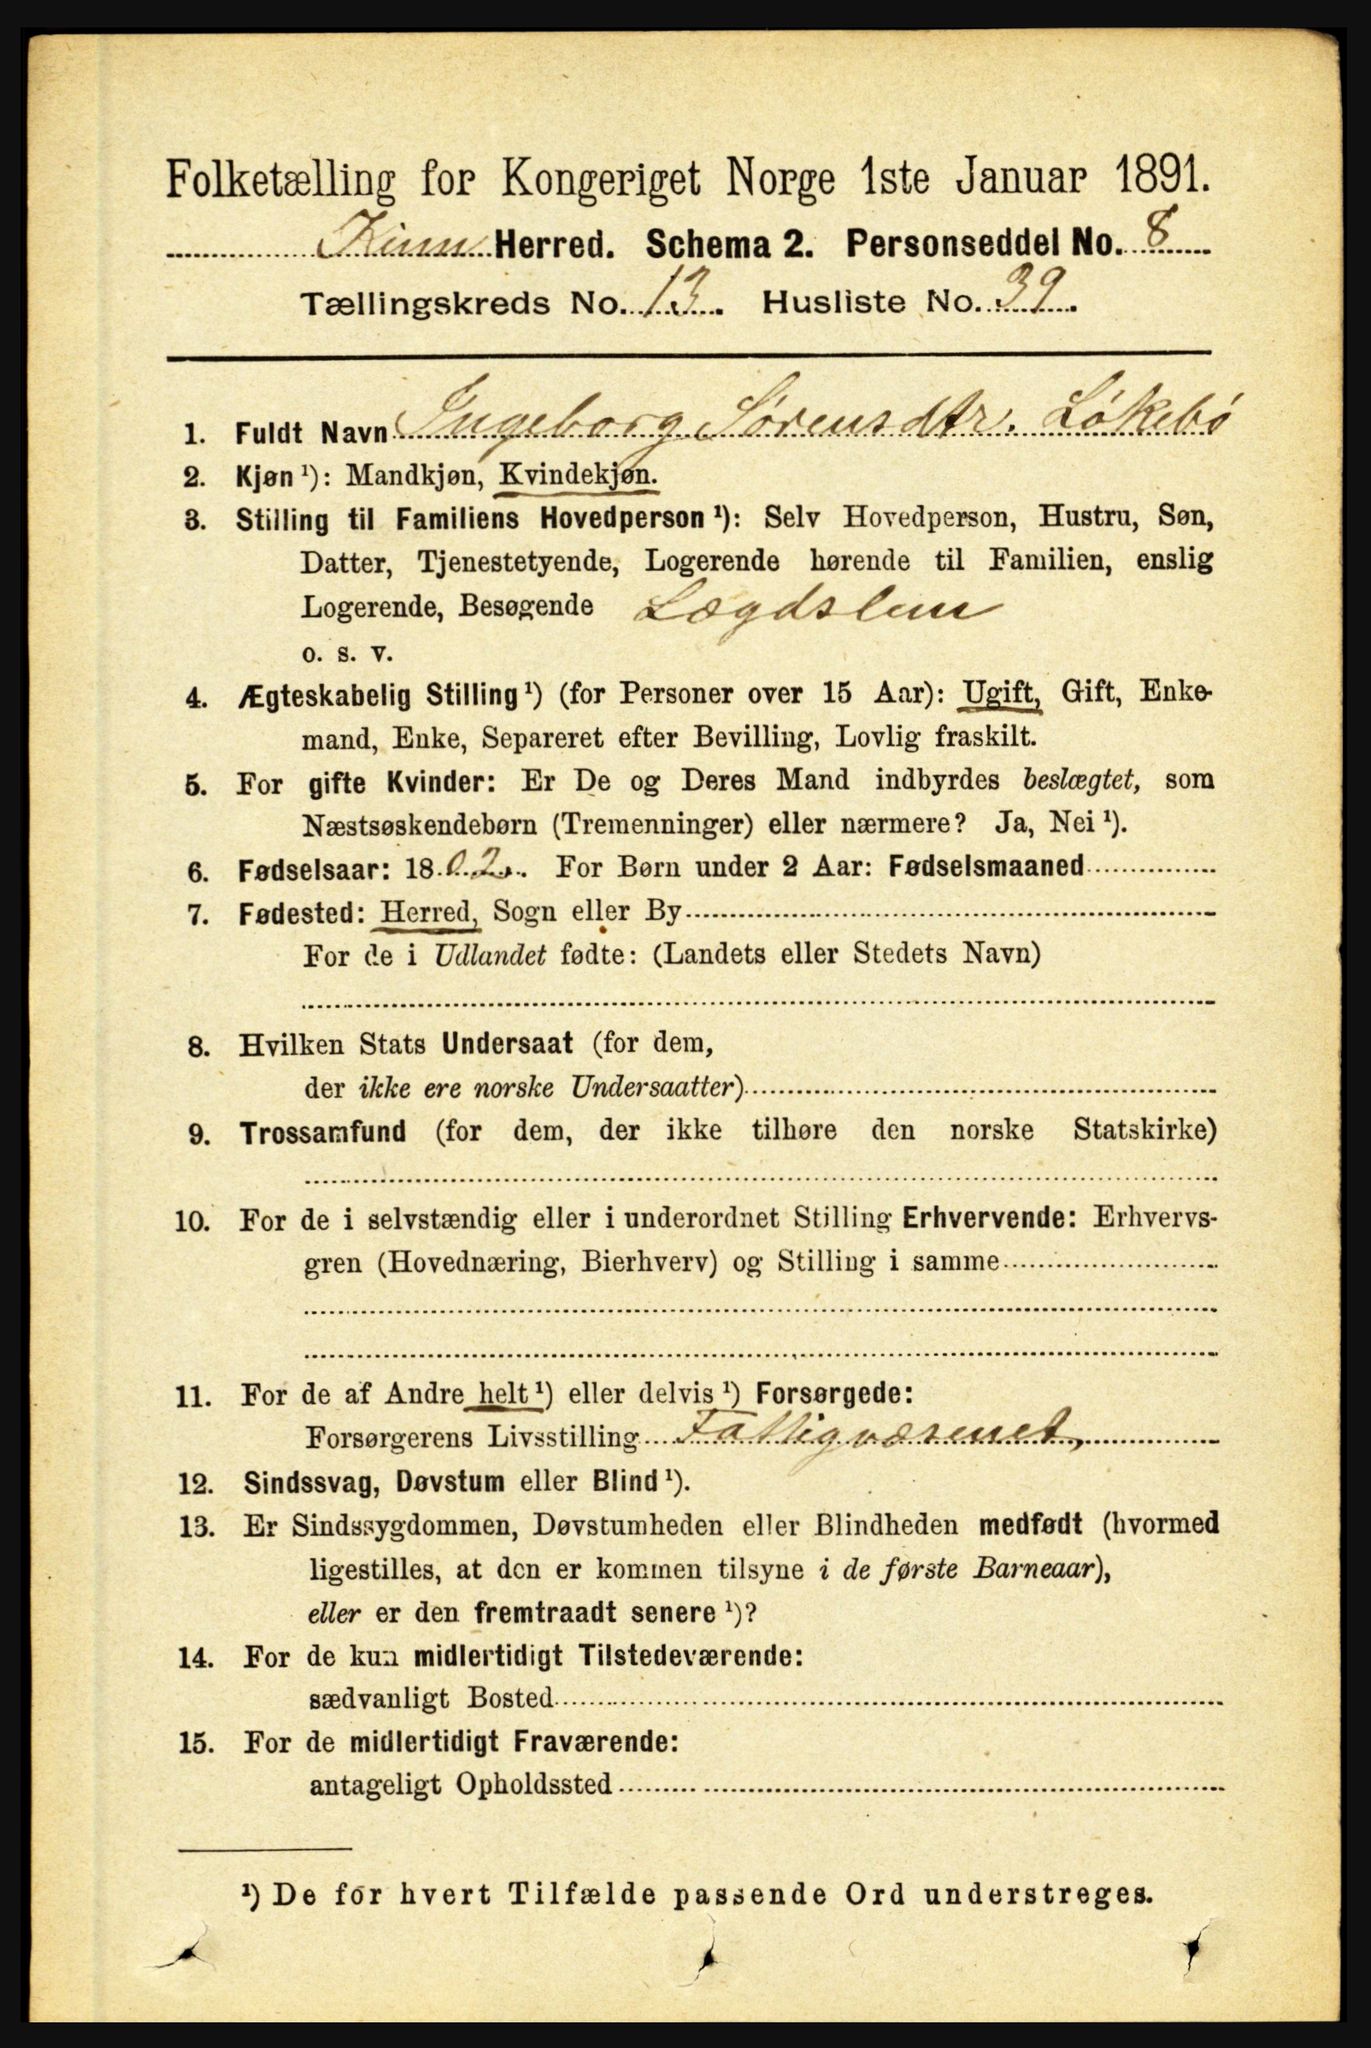 Folketælling for Kongeriget Norge 1ste Januar 1891.
Kinn Herred. Schema 2. Personseddel No. 8
Tællingskreds No. 13. Husliste No. 39.
1. Fuldt Navn Ingeborg Sørensdtr. Løkebø
2. Kjøn ¹): Mandkjøn, Kvindekjøn.
3. Stilling til Familiens Hovedperson ¹): Selv Hovedperson, Hustru, Søn,
Datter, Tjenestetyende, Logerende hørende til Familien, enslig
Logerende, Besøgende Lægdslem
o. s. v.
4. Ægteskabelig Stilling ¹) (for Personer over 15 Aar): Ugift, Gift, Enke-
mand, Enke, Separeret efter Bevilling, Lovlig fraskilt.
5. For gifte Kvinder: Er De og Deres Mand indbyrdes beslægtet, som
Næstsøskendebørn (Tremenninger) eller nærmere? Ja, Nei ¹).
6. Fødselsaar: 1802. For Børn under 2 Aar: Fødselsmaaned
7. Fødested: Herred, Sogn eller By
For de i Udlandet fødte: (Landets eller Stedets Navn)
8. Hvilken Stats Undersaat (for dem,
der ikke ere norske Undersaatter)
9. Trossamfund (for dem, der ikke tilhøre den norske Statskirke)
10. For de i selvstændig eller i underordnet Stilling Erhvervende: Erhvervs-
gren (Hovednæring, Bierhverv) og Stilling i samme
11. For de af Andre helt ¹) eller delvis ¹) Forsørgede:
Forsørgerens Livsstilling Fattigvæsenet,
12. Sindssvag, Døvstum eller Blind ¹).
13. Er Sindssygdommen, Døvstumheden eller Blindheden medfødt (hvormed
ligestilles, at den er kommen tilsyne i de første Barneaar),
eller er den fremtraadt senere ¹)?
14. For de kun midlertidigt Tilstedeværende:
sædvanligt Bosted
15. For de midlertidigt Fraværende:
antageligt Opholdssted
¹) De for hvert Tilfælde passende Ord understreges.